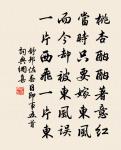 桃杏酣酣著意紅
當時只要嫁東風
而今却被東風誤
一片西飛一片東
舒邦佐春日即事五首
詞典網集